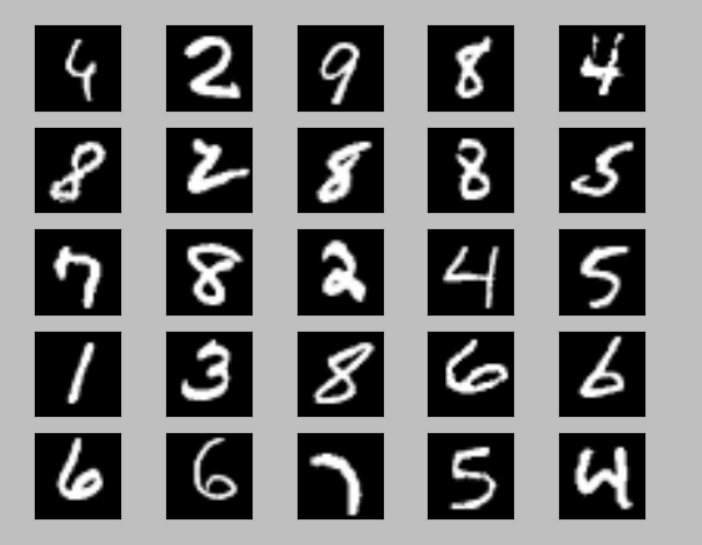 4 2 9 8 4
8 2 8 8 5
7 8 2 4 5
1 3 8 6 6
6 6 7 5 4